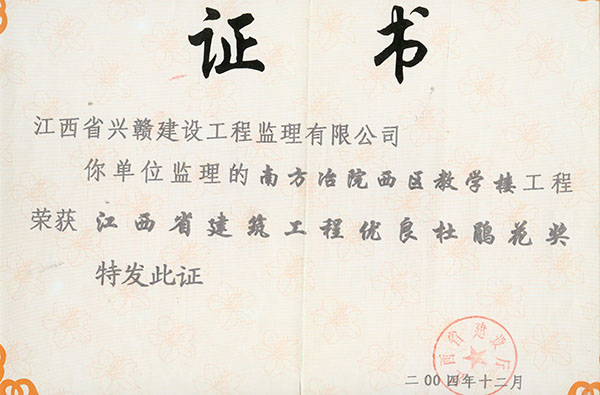 证书
江西省兴赣建设工程监理有限公司
你单位监理的南方冶院西区教学楼工程
荣获 江西省建筑工程优良杜鹃花奖
特发此证
江西省建设厅
二00四年十二月